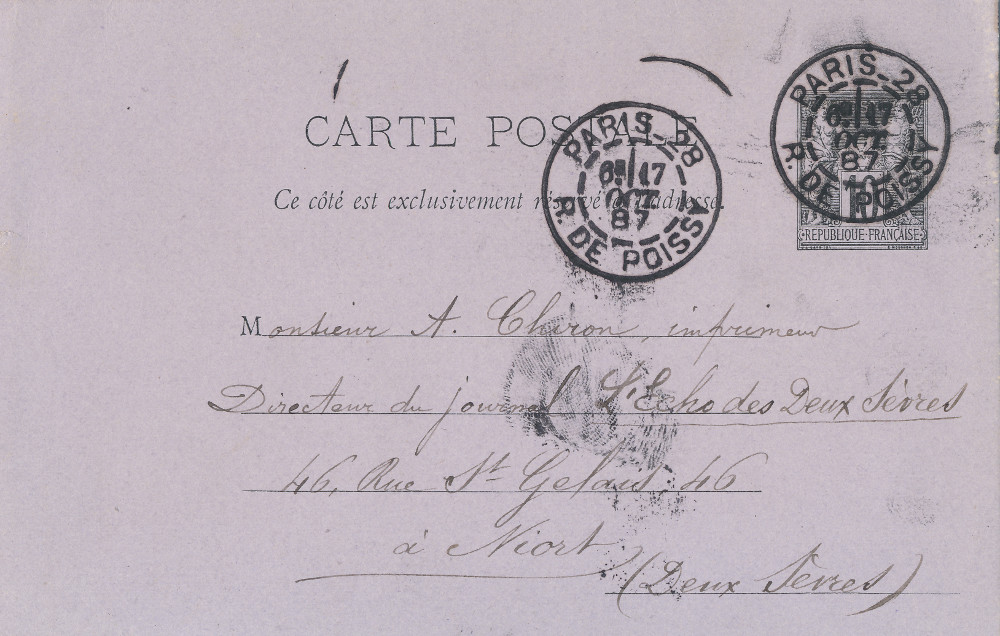 CARTE POSTALE
Ce côté est exclusivement réservé à l'adresse.
PARIS_28
6E 17
OCT
87
R. DE POISSY
PARIS_28
6E 17
OCT
87
R. DE POISSY
10
REPUBLIQUE FRANÇAISE
Monsieur A. Chiron, imprimeur
Directeur du journal L'Echo des Deux Sèvres
46, Rue St Gelais, 46
à Niort
(Deux Sèvres)